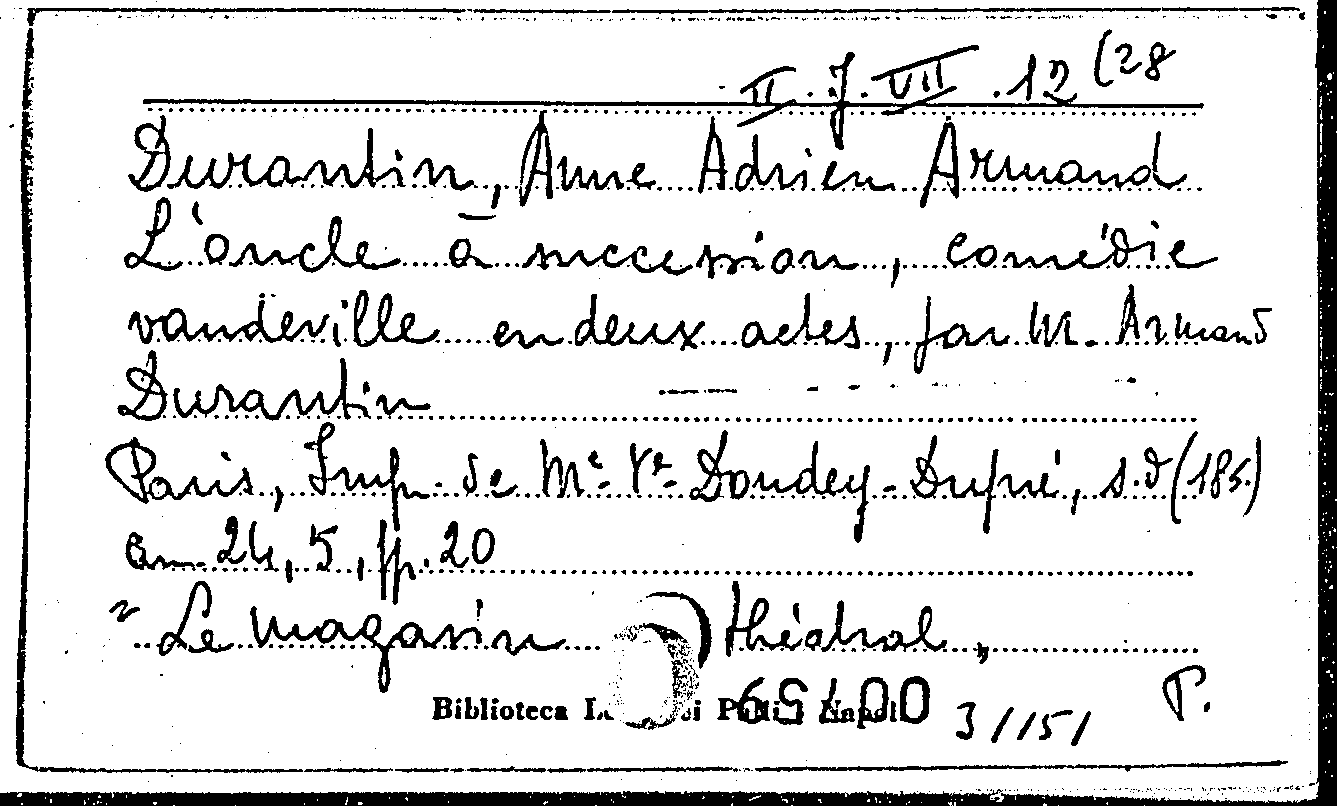 II. J. VII. 12 (28
Durantin, Anne Adrien Armand
L'oncle à succession, comédie
vaudeville en deux actes, par M. Armand
Durantin
Paris, Imp. de Mc. Ve. Dondey-Dupré, s.d (185.)
cm. 24,5, pp. 20
"Le magasin théatral"
Biblioteca Napoli
3/151 P.